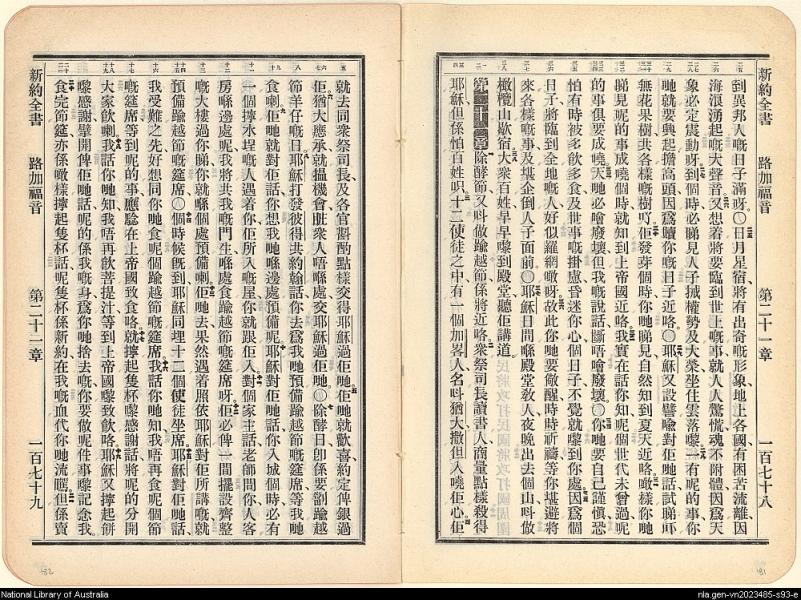 新約全書 路加福音 第二十一章 一百七十八
到異邦人嘅日子滿呀〇日月星宿將有出奇嘅形象地上各國有困苦流離因
海浪湧起嘅大聲音又想着將要臨到世上嘅事就人人驚慌魂不附體因爲天
象必定震動呀到個時必睇見人子㨢權勢及大榮坐住雲落嚟一有呢的事你
哋就要興起擔高頭因爲贖你嘅日子近咯〇耶穌又設譬喻對佢哋話試睇吓
無花果樹共各樣嘅樹吖佢發芽個時你哋睇見自然知到夏天近咯噉樣你哋
睇見呢的事成嘵個時就知到上帝國近咯我實在話你知呢個世代未曾過呢
的事俱要成嘵天地必噲廢壞但我嘅說話斷唔噲廢壞〇你哋要自己謹愼恐
怕有時被多飲多食及世事嘅掛慮昏迷你心個日子不覺就嚟到你處因爲個
日子將臨到全地嘅人好似羅網噉呀故此你哋要儆醒時時祈禱等你堪避將
來各樣嘅事及堪企倒人子面前〇耶穌日間喺殿堂敎人夜晚出去個山叫做
橄欖山歇宿大衆百姓早早嚟到殿堂聽佢講道
第二十二章 除酵節又叫做踰越節係將近咯衆祭司長讀書人商量點樣殺得
耶穌但係怕百姓呮十二使徒之中有一個加畧人名叫猶大撒但入嘵佢心佢
就去同衆祭司長及各官斟酌點樣交得耶穌過佢哋佢哋就歡喜約定俾銀過
佢猶大應承就搵機會趁衆人唔喺處交耶穌過佢哋〇除酵日卽係要劏踰越
節羊仔嘅日耶穌打發彼得共約翰話你去爲我哋預備踰越節嘅筵席等我哋
食喇佢哋就對佢話你想我哋喺邊處預備呢耶穌對佢哋話你入城個時必有
一個擰水埕嘅人遇着你佢所入嘅屋你就跟佢入對個家主話老師問你人客
房喺邊處呢我將共我嘅門生喺處食踰越節嘅筵席呀佢必俾一間擺設齊整
嘅大樓過你睇你就喺個處預備喇佢哋去果然遇着照依耶穌對佢所講嘅就
預備踰越節嘅筵席〇個時候旣到耶穌同埋十二個使徒坐席耶穌對佢哋話
我受難之先好想同你哋食呢個踰越節嘅筵席我話你哋知我唔再食呢個節
嘅筵席等到呢的事應騐在上帝國致食咯就擰起隻杯嚟感謝話將呢的分開
大家飲喇我話你哋知我唔再飲菩提汁等到上帝國嚟致飲咯耶穌又擰起餅
嚟感謝擘開俾佢哋話呢的係我嘅身爲你哋捨去嘅你要做呢件事嚟記念我
食完筵席亦係噉樣擰起隻杯話呢隻杯係新約在我嘅血代你哋流嘅但係賣
新約全書 路加福音 第二十一章 一百七十九
182
181
National Library of Australia
nla.gen-vn2023485-s93-e